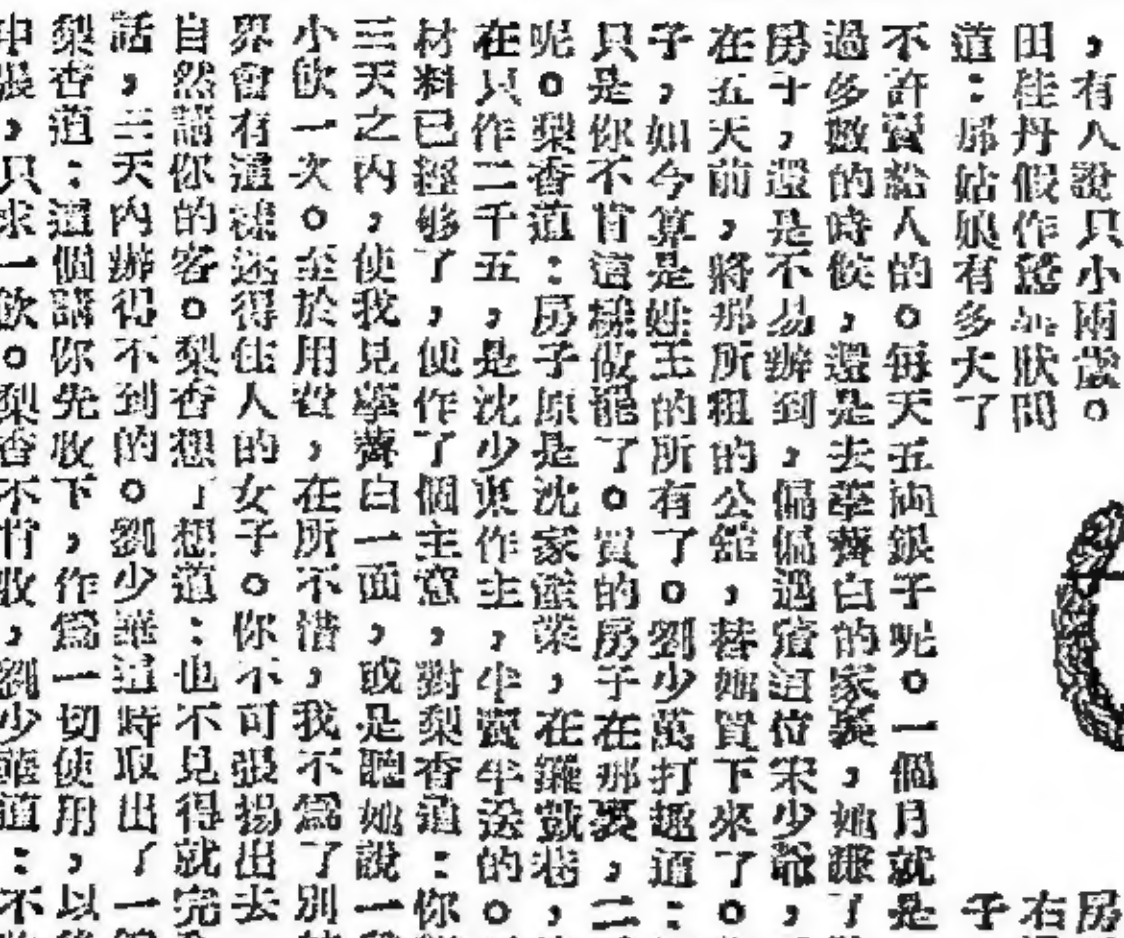 ，有人說只小兩歲。
田佳丹假作狀問
道：那姑娘有多大了
房
右
子
不許賣給人的。每天五両銀子呢。一個月就是
過多數的時候，還是去莘薺白的家裏，她賺了
房子，還是不易辦到，偏偏遇這位宋少爺，
在五天前，將那所租的公館，替她買下來了。
子，如今算是姓王的所有了。劉少萬打趣道：
只是你不肯這樣做罷了。買的房子在那裏，二
呢。梨香道：房子原是沈家產業，在羅鼓巷，
在只作二千五，是沈少東作主，半賣半送的。
材料已經够了，便作了個主意，對梨香道：你
三天之內，使我見莘薺白一面，或是聽她說一
小飲一次。至於用費，在所不惜，我不爲了別
界會有這樣迷得住人的女子。你不可張揚出去
自然請你的客。梨香想了想道：也不見得就完
話，三天內辦得不到的。劉少華這時取出了一
梨香道：這個請你先收下，作爲一切使用，以
只求一飲。梨香不肯收，劉少華道：不